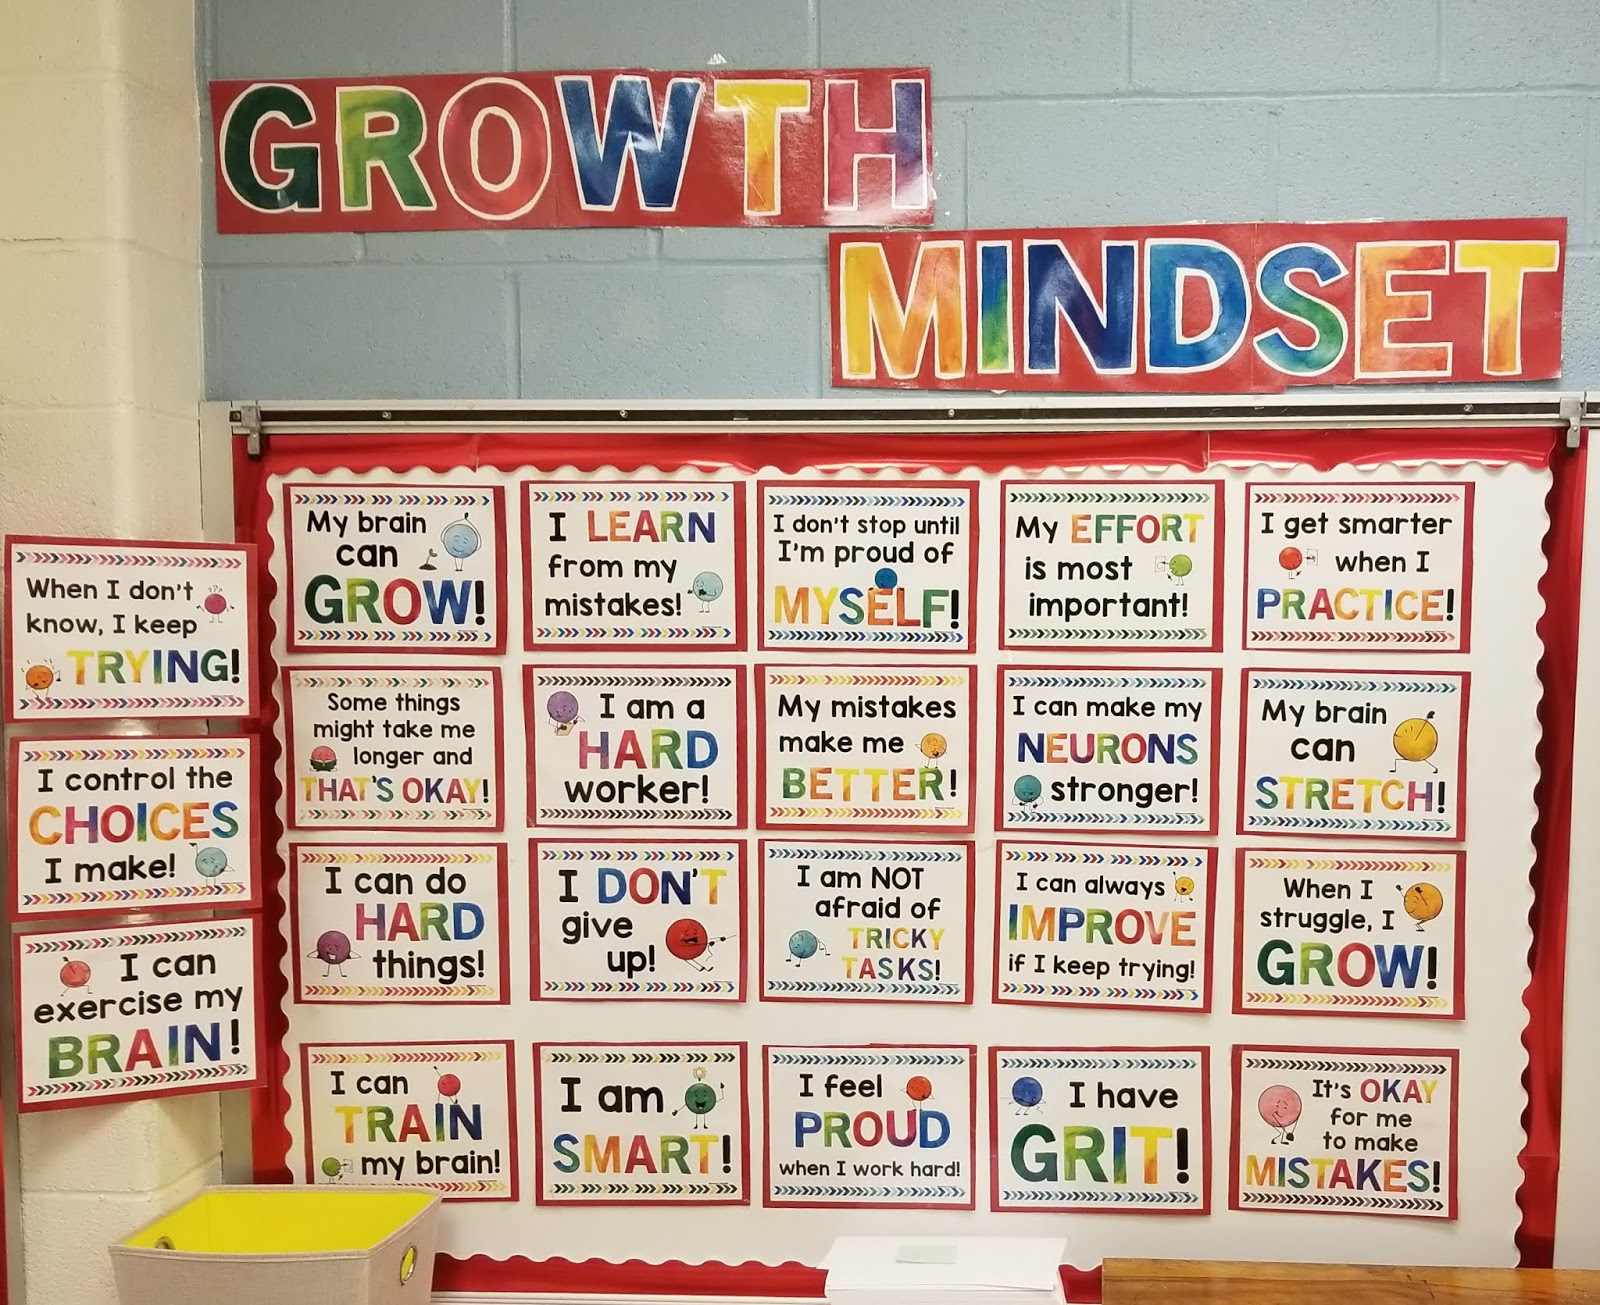 GROWTH
MINDSET
When I don't
know, I keep
TRYING!
I control the
CHOICES
I make!
I can
exercise my
BRAIN!
My brain
can
GROW!
I LEARN
from my
mistakes!
I don't stop until
I'm proud of
MYSELF!
My EFFORT
is most
important!
I get smarter
when I
PRACTICE!
Some things
might take me
longer and
THAT'S OKAY!
I am a
HARD
worker!
My mistakes
make me
BETTER!
I can make my
NEURONS
stronger!
My brain
can
STRETCH!
I can do
HARD
things!
I DON'T
give
up!
I am NOT
afraid of
TRICKY
TASKS!
I can always
IMPROVE
if I keep trying!
When I
struggle, I
GROW!
I can
TRAIN
my brain!
I am
SMART!
I feel
PROUD
when I work hard!
I have
GRIT!
It's OKAY
for me
to make
MISTAKES!